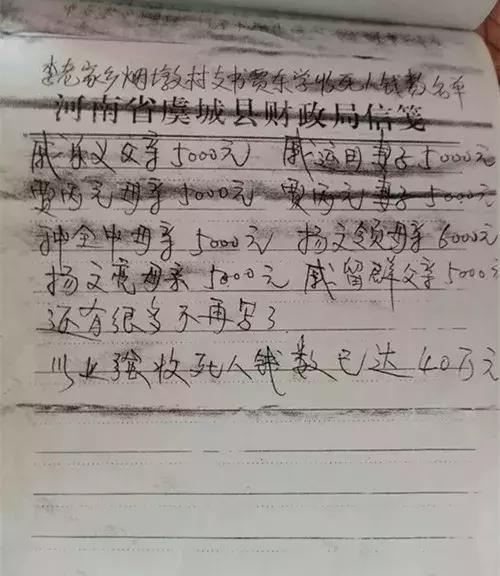 李老家乡烟墩村支书贾东学收死人钱数名单
河南省虞城县财政局信笺
戚洪义父亲5000元 戚运田妻子5000元
贾丙元母亲5000元 贾丙元妻子5000元
种全中母亲5000元 扬文领母亲6000元
扬文亮母亲5000元 戚留群父亲5000元
还有很多不再写了
以上强收死人钱数已达40万元